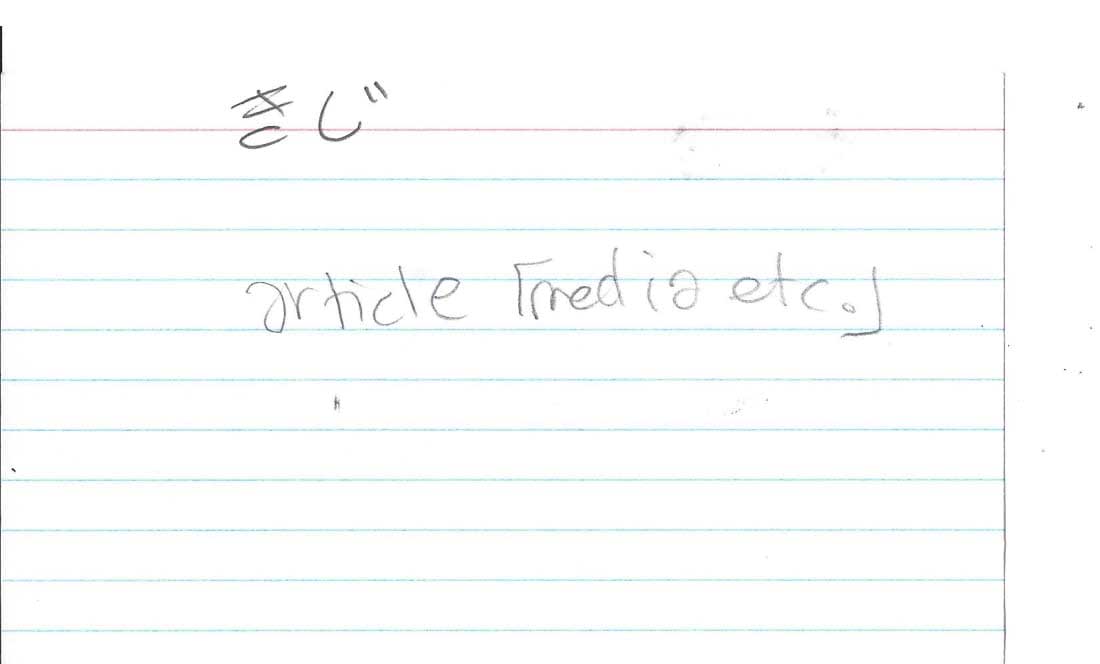 きじ
article「media etc.」